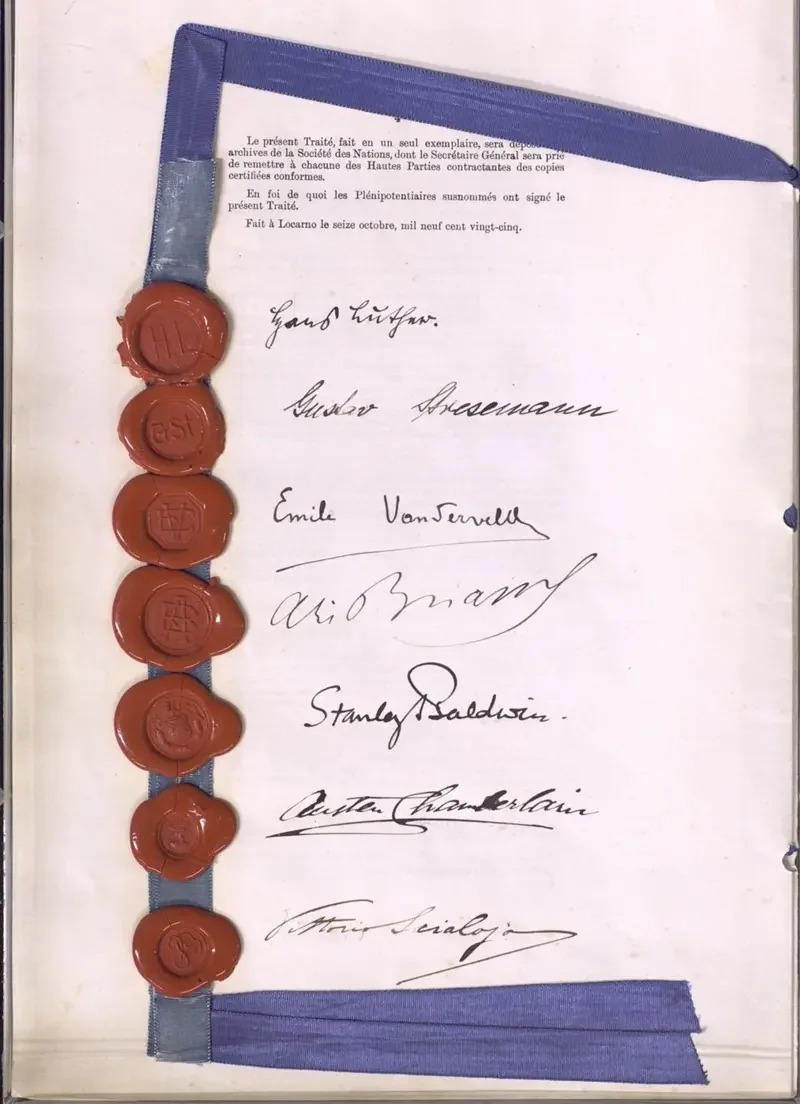 Le présent Traité, fait en un seul exemplaire, sera
archives de la Société des Nations, dont le Secrétaire Général sera prié
de remettre à chacune des Hautes Parties contractantes des copies
certifiées conformes.
En foi de quoi les Plénipotentiaires susnommés ont signé le
présent Traité.
Fait à Locarno le seize octobre, mil neuf cent vingt-cinq.
Hans Luther.
HL
Gustav Stresemann
GSt
Emile Vandervelde
Ari Briand
Stanley Baldwin.
Austen Chamberlain
Vittorio Scialoja